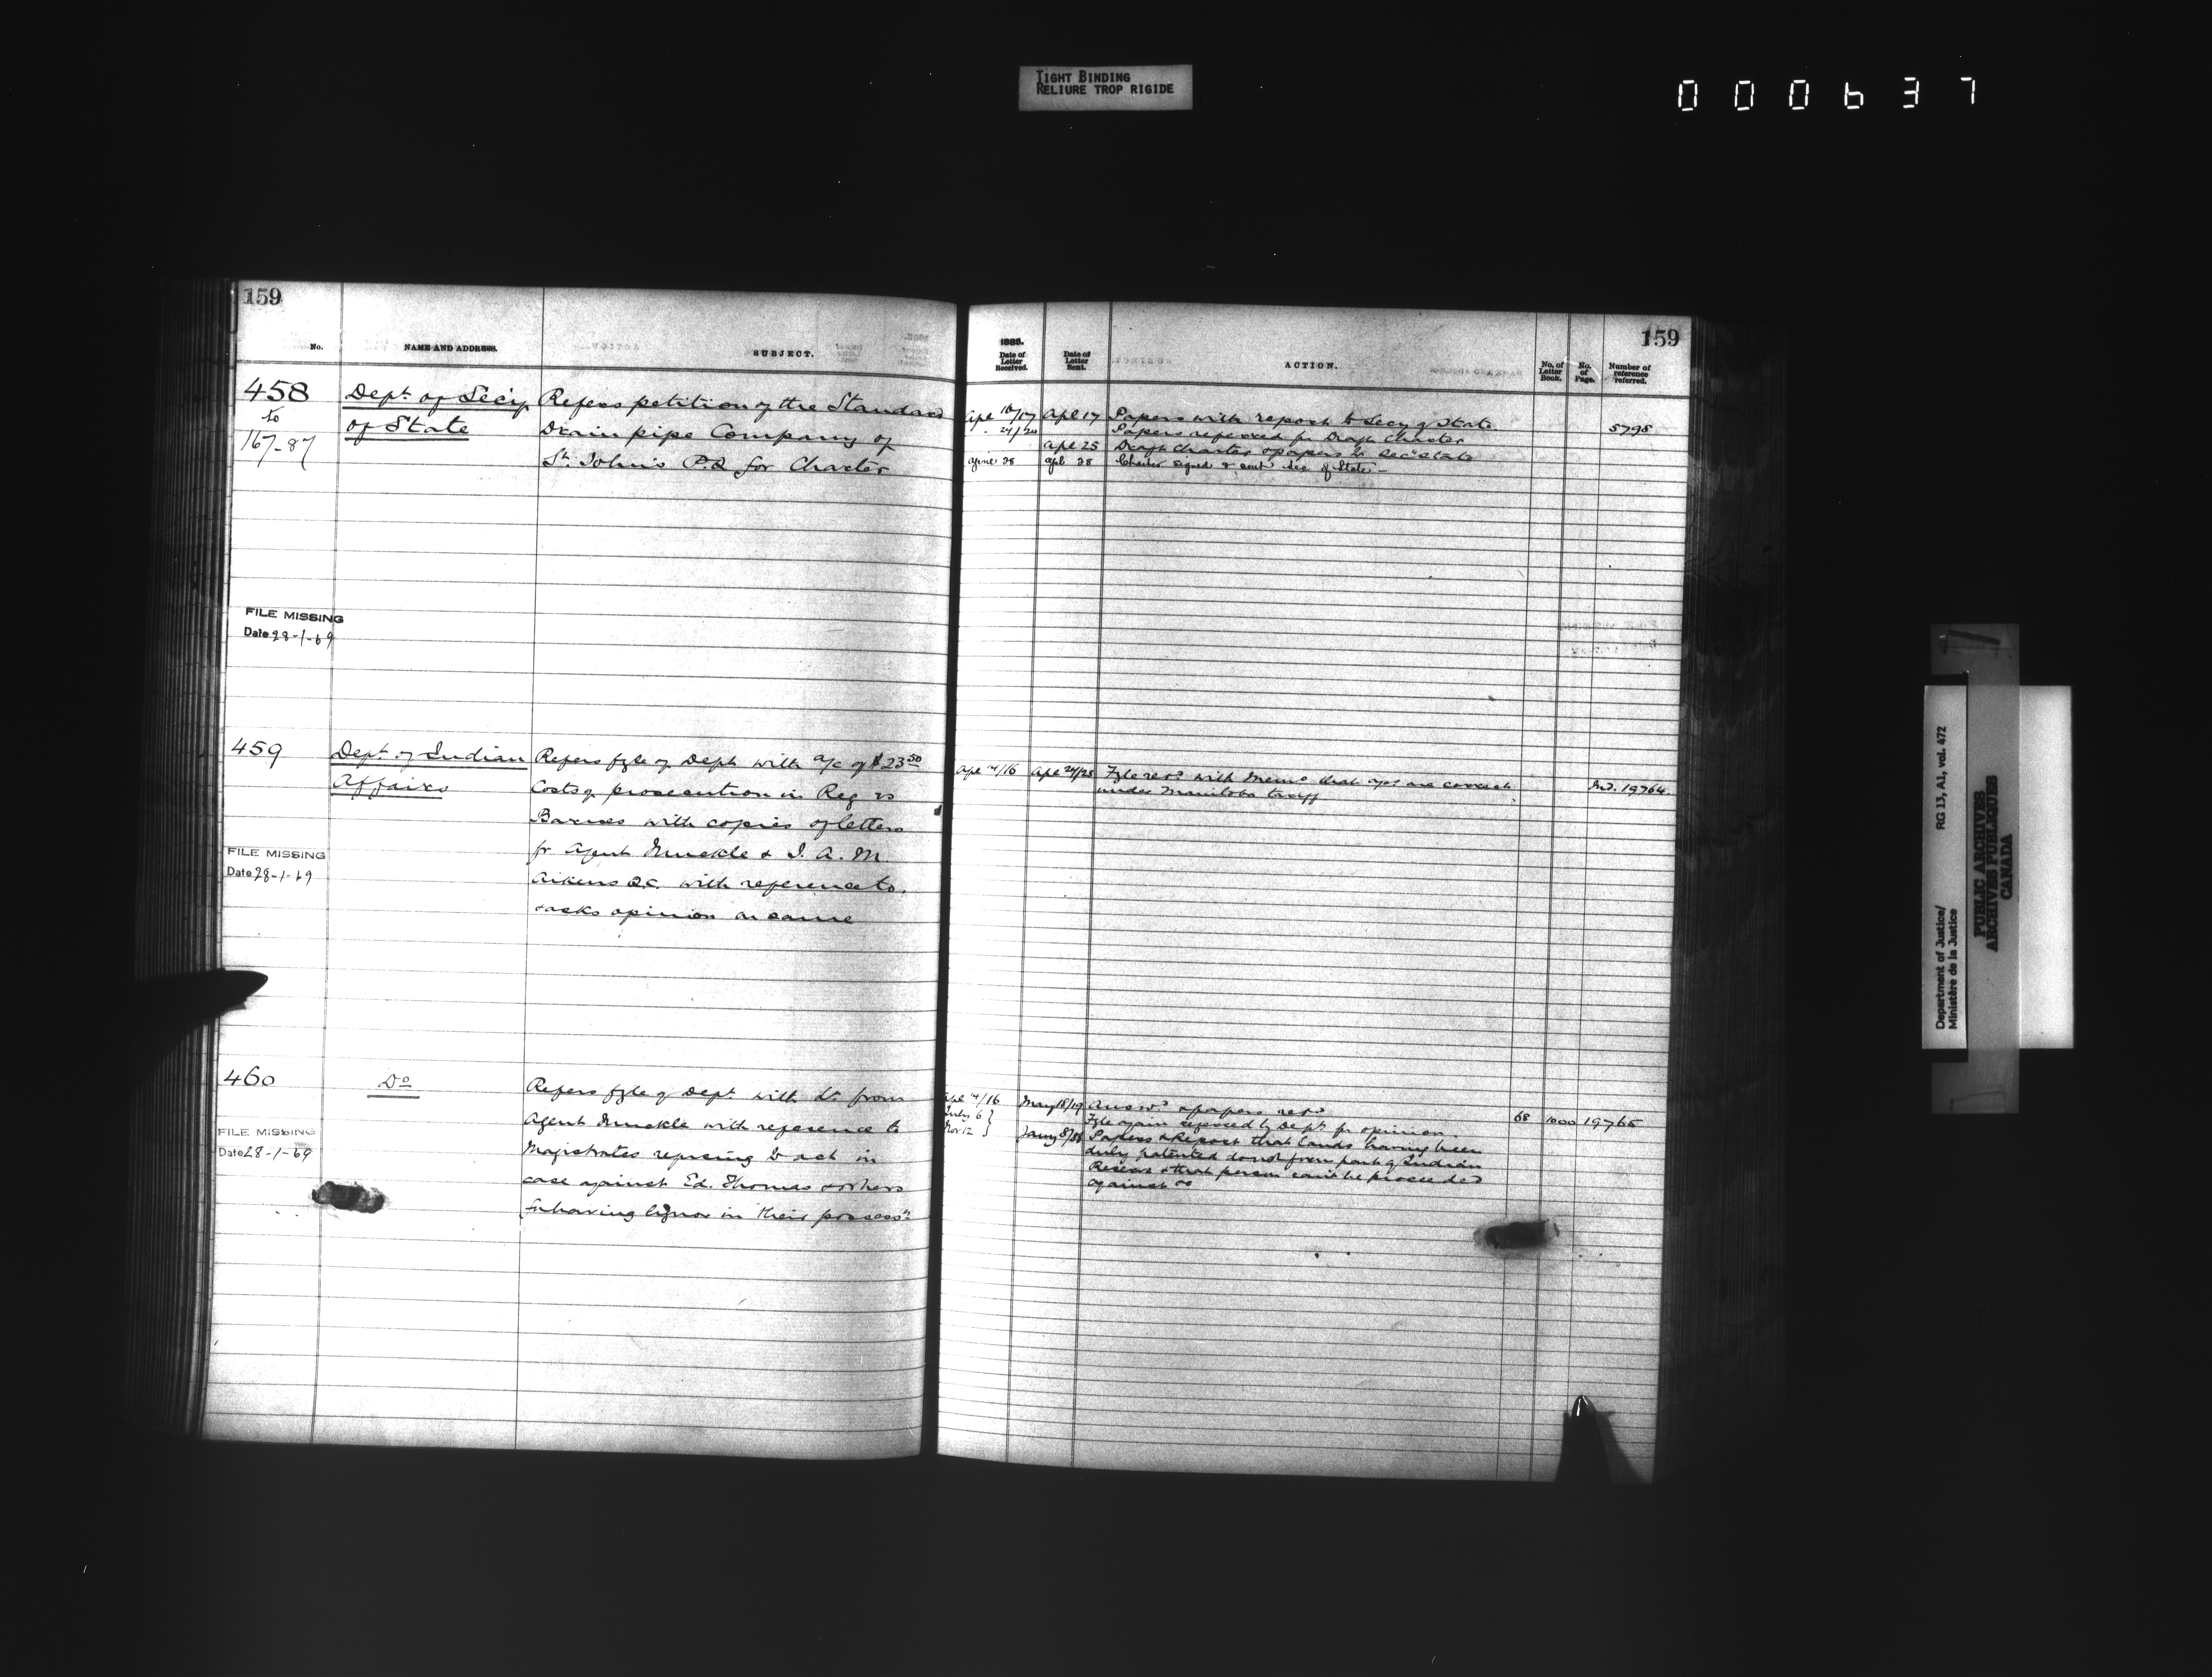 TIGHT BINDING
RELIURE TROP RIGIDE
000637
159
No.
NAME AND ADDRESS.
SUBJECT.
458
to
167-87
Dept. of Secy
of State
Refers petition of the Standard
Drain pipe Company of
St. John's P.Q for Charter
FILE MISSING
Date 28-1-69
459
Dept. of Indian
Affairs
Refers fyle of Dept with a/c of $23.50
Costs of prosecution in Reg vs
Barnes with copies of letters
fr Agent Muckle & J. A. M.
Aikens Q.C. with reference to,
& asks opinion on same
FILE MISSING
Date 28-1-69
460
Do
Refers fyle of Dept. with Lr. from
Agent Muckle with reference to
Magistrates refusing to act in
case against Ed. Thomas & others
for having liquor in their possessn
FILE MISSING
Date 28-1-69
159
1885.
Date of Letter Received.
Date of Letter Sent.
ACTION.
No. of Letter Book.
No. of Page.
Number of reference referred.
Apl 16/17 Apl 17 Papers with report to Secy of State 5795
24/24 Papers referred for Draft Charter
Apl 25 Draft Charter & papers to Sec State
Apl 28 Charter signed & sent Sec of State
Apl 14/16 Apl 24/25 Fyle retd. with Memo that a/cs are correct Ind. 19764
under Manitoba tariff
Apl 14/16 May 18/19 Answd. & papers retd. 68 1000 19765
July 6 Fyle again referred by Dept. for opinion
Nov 12 Jany 8/86 Papers & Report that lands having been
duly patented do not form part of Indian
Reserve & that person can't be proceeded
against
Department of Justice/
Ministère de la Justice
RG 13, A1, vol. 472
PUBLIC ARCHIVES
ARCHIVES PUBLIQUES
CANADA